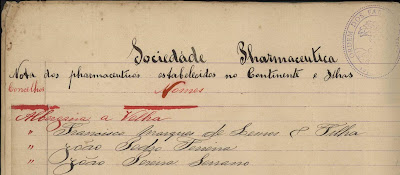 Sociedade Pharmaceutica
Nota dos pharmaceuticos estabelecidos no Continente e Ilhas
Concelhos Nomes
Albergaria a Velha
" Francisco Marques de Lemos & Filha
" João Pedro Ferreira
" João Pereira Serrano